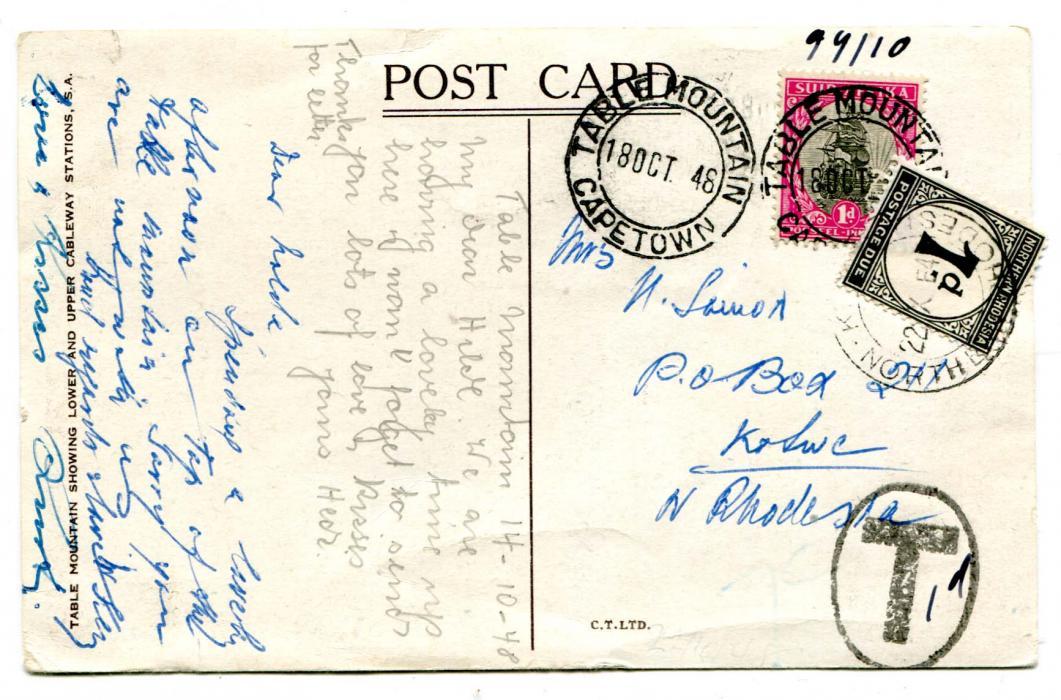 POST CARD
99/10
TABLE MOUNTAIN
18 OCT. 48
CAPETOWN
TABLE MOUNTAI
18 OCT
SUI
KA
1d
POSSEEL-IN
NORTHERN RHODESIA
1d
POSTAGE DUE
22
NORTHE
Mrs
H. Simon
P.O Box
N Rhodesia
T
1d
C.T.LTD.
Table Mountain 14-10-48
My own Hilde. We are
having a lovely time up
here & wont forget to send
you lots of love, kisses
yours
Thanks
for letter
Dear Hilde
Spending a lovely
afternoon on top of the
Table Mountain Sorry you
are not with us
Love & Kisses
TABLE MOUNTAIN SHOWING LOWER AND UPPER CABLEWAY STATIONS, S.A.